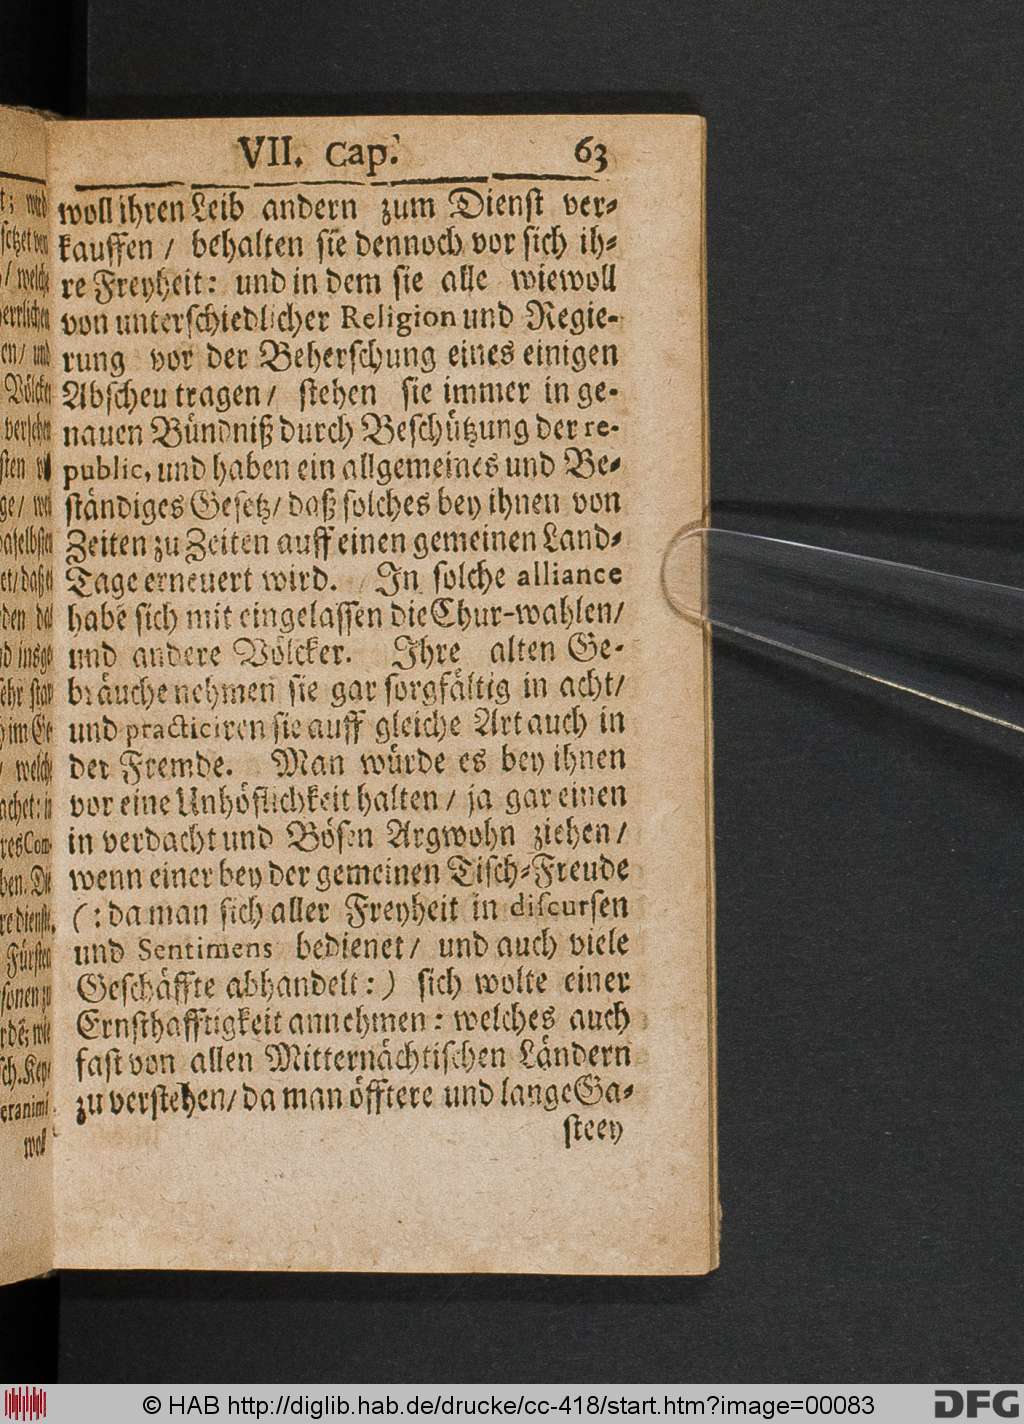 VII. Cap. 63
woll ihren Leib andern zum Dienst ver-
kauffen / behalten sie dennoch vor sich ih-
re Freyheit: und in dem sie alle wiewoll
von unterschiedlicher Religion und Regie-
rung vor der Beherschung eines einigen
Abscheu tragen / stehen sie immer in ge-
nauen Bündniß durch Beschützung der re-
public, und haben ein allgemeines und Be-
ständiges Gesetz / daß solches bey ihnen von
Zeiten zu Zeiten auff einen gemeinen Land-
Tage erneuert wird. In solche alliance
habē sich mit eingelassen die Chur-wahlen /
und andere Völcker. Ihre alten Ge-
bräuche nehmen sie gar sorgfältig in acht /
und practiciren sie auff gleiche Art auch in
der Fremde. Man würde es bey ihnen
vor eine Unhöflichkeit halten / ja gar einen
in verdacht und Bösen Argwohn ziehen /
wenn einer bey der gemeinen Tisch-Freude
(: da man sich aller Freyheit in discursen
und Sentimens bedienet / und auch viele
Geschäffte abhandelt :) sich wolte einer
Ernsthafftigkeit annehmen: welches auch
fast von allen Mitternächtischen Ländern
zu verstehen / da man öfftere und lange Ga-
steey
© HAB http://diglib.hab.de/drucke/cc-418/start.htm?image=00083
DFG